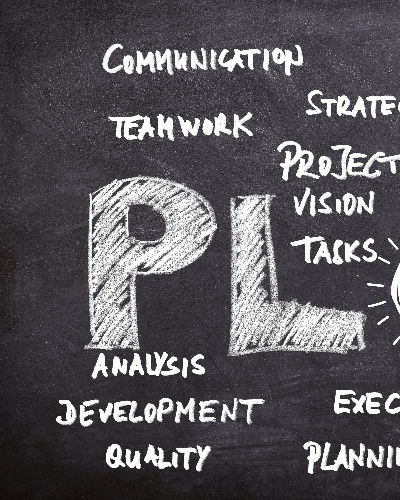 COMMUNICATION
STRATE
TEAMWORK
PROJECT
VISION
TASKS
PL
ANALYSIS
DEVELOPMENT
EXEC
QUALITY
PLANNI